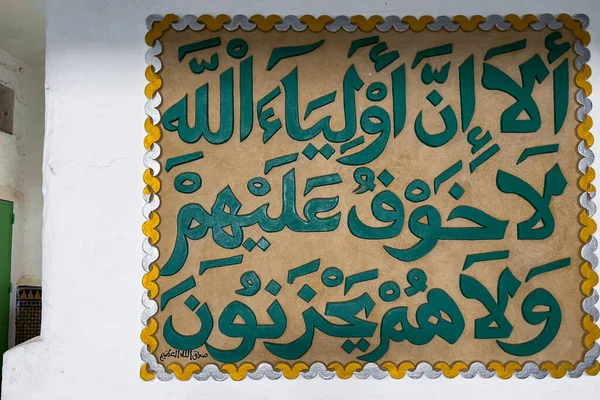 أَلَا إِنَّ أَوْلِيَاءَ اللَّهِ
لَا خَوْفٌ عَلَيْهِمْ
وَلَا هُمْ يَحْزَنُونَ
صدق الله العظيم